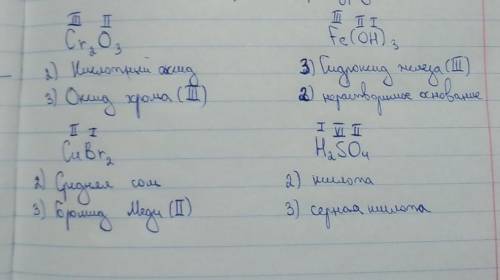 III II
Cr2O3
2) Кислотный оксид
3) Оксид хрома (III)
III II I
Fe(OH)3
3) Гидроксид железа (III)
2) нерастворимое основание
II I
CuBr2
2) Средняя соль
3) Бромид Меди (II)
I VI II
H2SO4
2) кислота
3) серная кислота